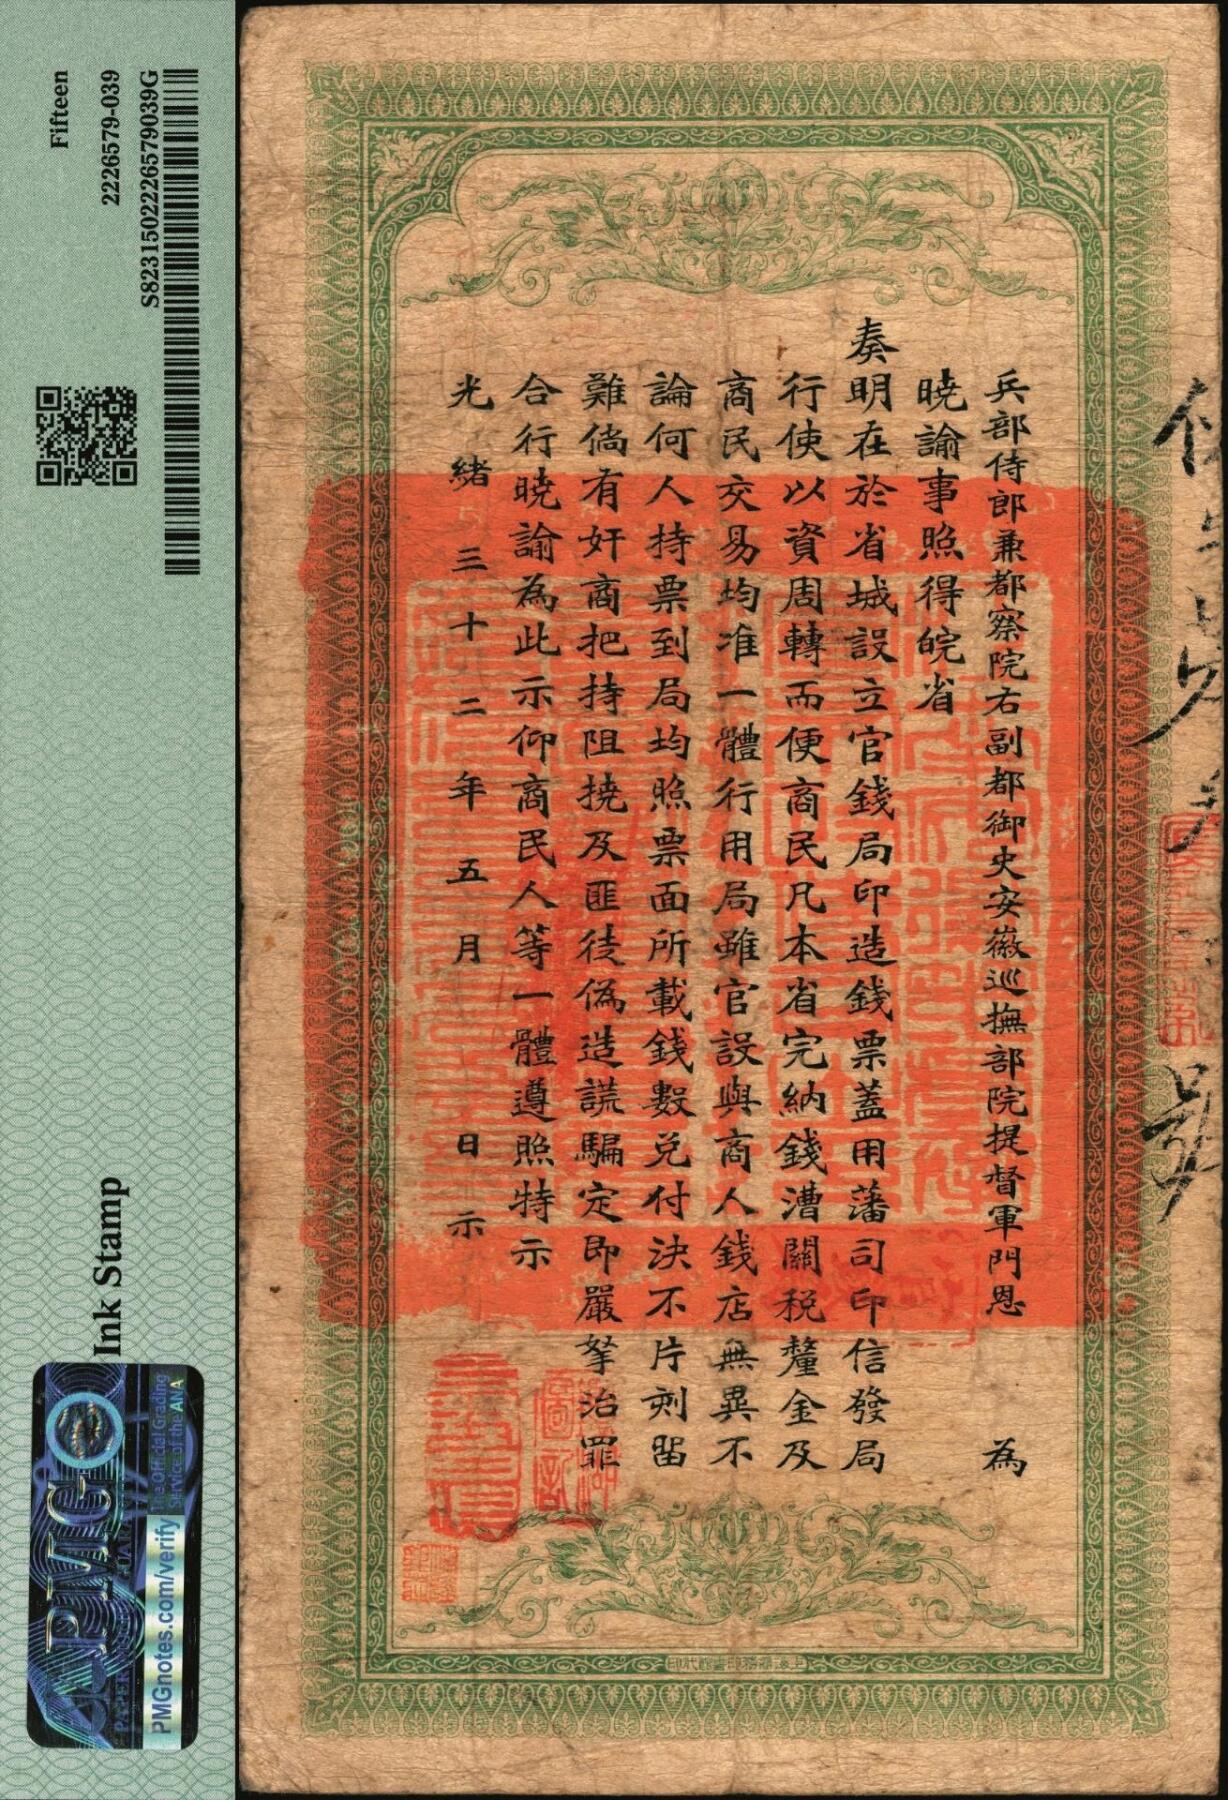 兵部侍郎兼都察院右副都御史安徽巡撫部院提督軍門恩　為
曉諭事照得皖省
奏明在於省城設立官錢局印造錢票蓋用藩司印信發局
行使以資周轉而便商民凡本省完納錢漕關税釐金及
商民交易均准一體行用局雖官設與商人錢店無異不
論何人持票到局均照票面所載錢數兑付決不片刻留
難倘有奸商把持阻撓及匪徒偽造謊騙定即嚴拏治罪
合行曉諭為此示仰商民人等一體遵照特示
光緒三十二年五月　日示
Fifteen
2226579-039
S8231502226579039G
Ink Stamp
PMG
The Official Grading
Service of the ANA
PMGnotes.com/verify